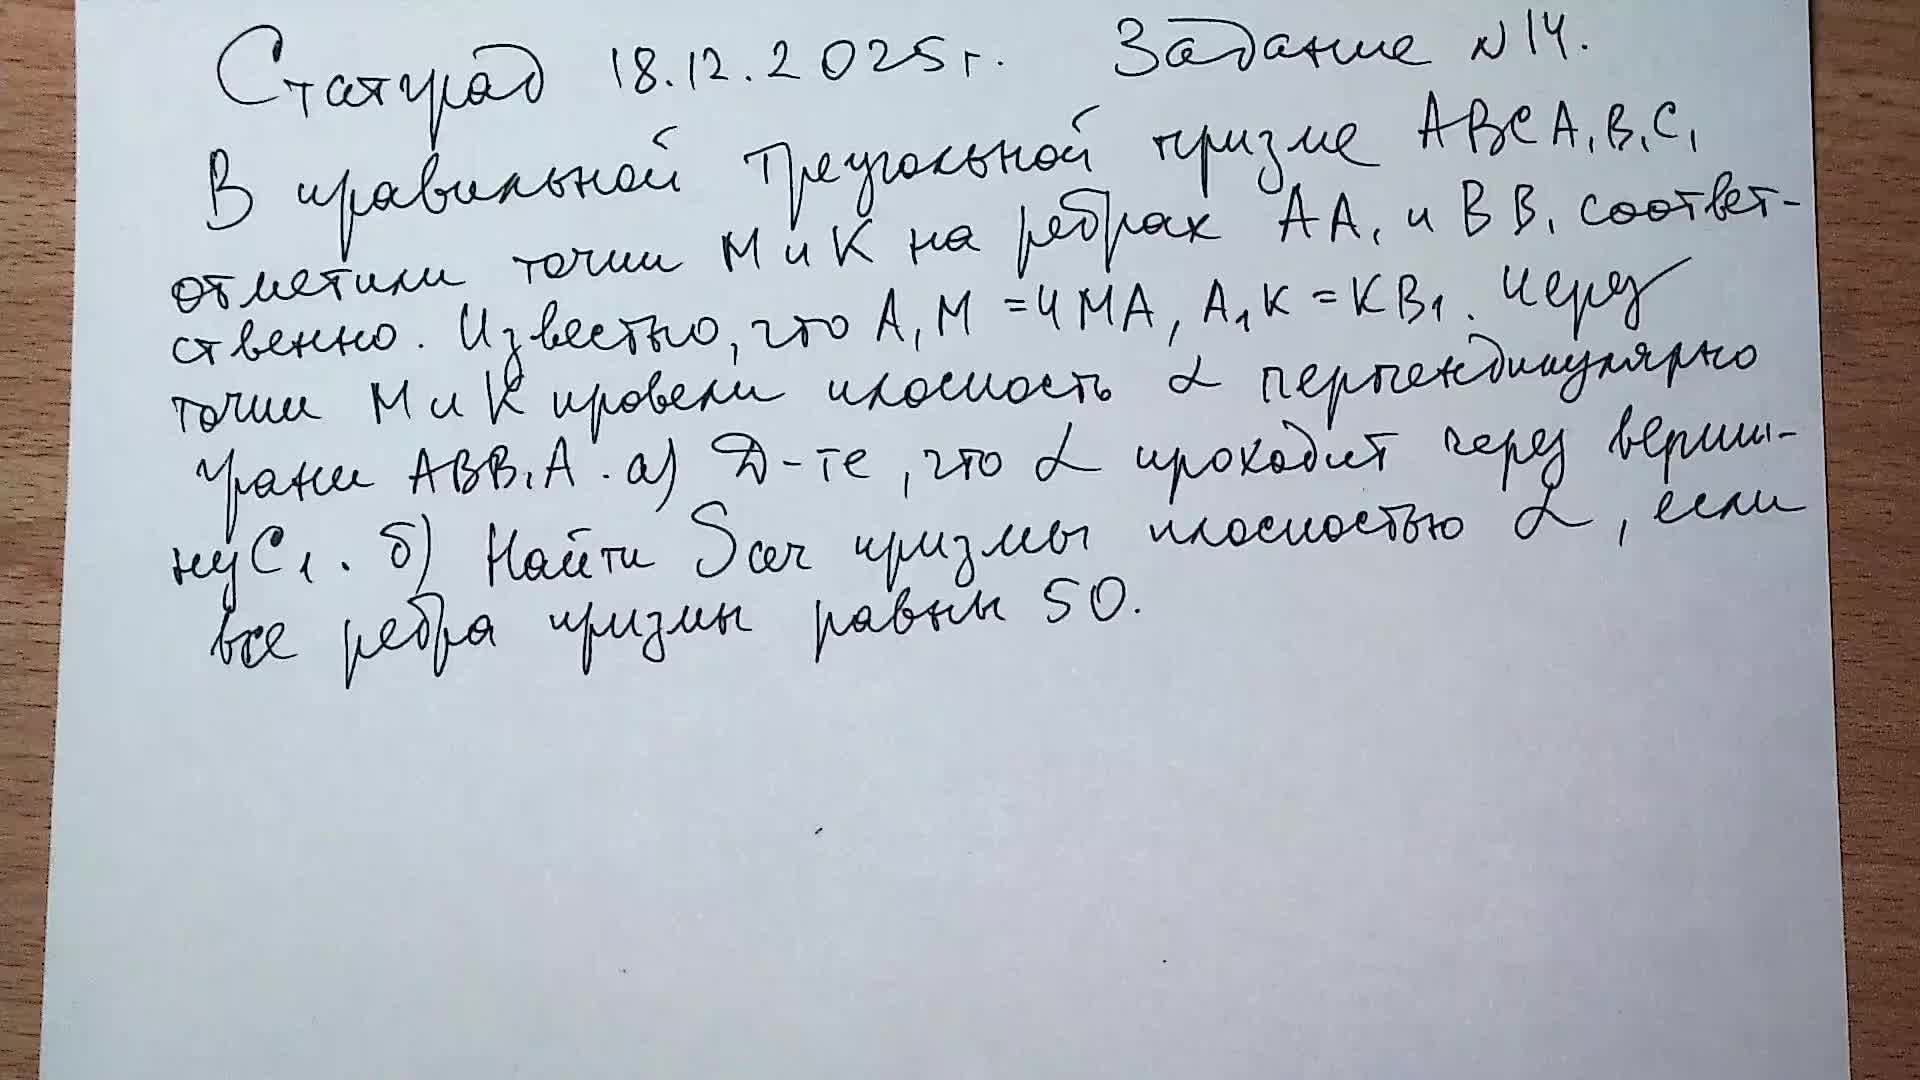 Статград 18.12.2025г. Задание №14.
В правильной треугольной призме ABCA₁B₁C₁
отметили точки М и К на ребрах AA₁ и BB₁ соответ-
ственно. Известно, что A₁M = 4MA, A₁K = KB₁. Через
точки М и К провели плоскость α перпендикулярно
грани ABB₁A. а) Д-те, что α проходит через верши-
ну C₁. б) Найти Sсеч призмы плоскостью α, если
все ребра призмы равны 50.